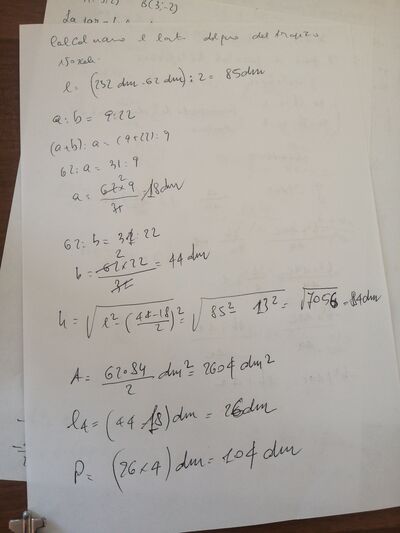 B(3;-2)
Calcoliamo il lato del trapezio
l = (232 dm - 62 dm) : 2 = 85 dm
a : b = 9 : 22
(a+b) : a = (9+22) : 9
62 : a = 31 : 9
a = 62×9/31 = 18 dm
2
62 : b = 31 : 22
b = 62×22/31 = 44 dm
2
h = √l² - (44-18/2)² = √85² - 13² = √7056 = 84 dm
A = 62·84/2 dm² = 2604 dm²
l₄ = (44 - 18) dm = 26 dm
P = (26×4) dm = 104 dm